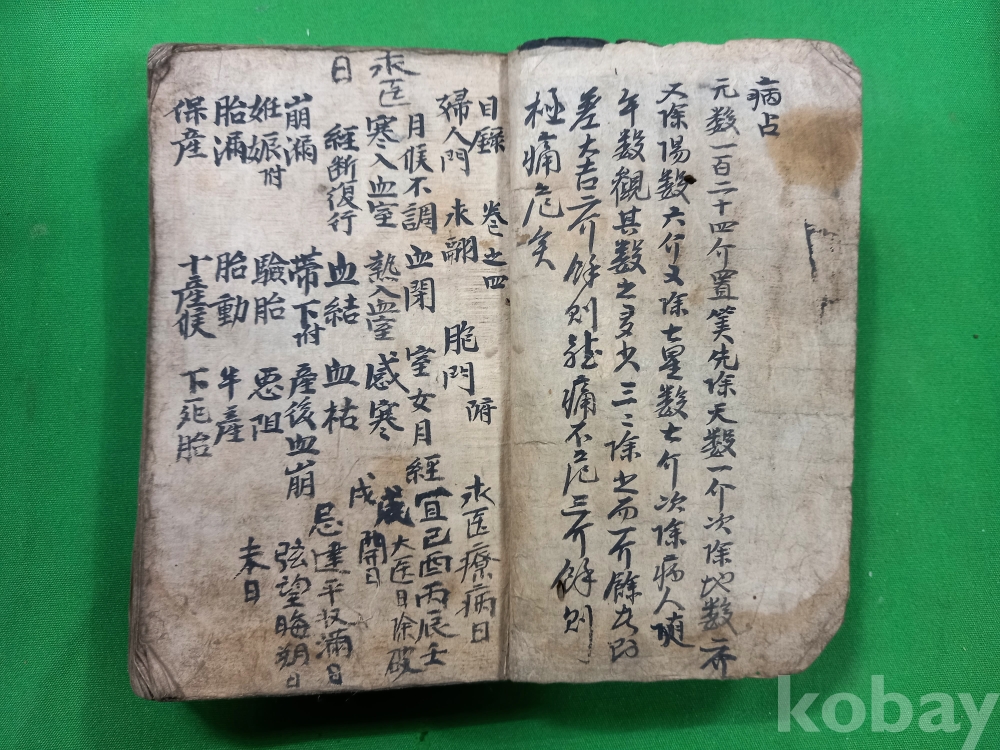 病占
元数一百二十四介置筭先除天数一介次除地数二介
又除陽数六介又除七星数七介次除病人随
年数觀其数之多少三三除之而一介餘者即
差大吉二介餘則雖痛不危三介餘則
極痛危矣
目錄 卷之四
婦人門 求嗣 胞門附
月候不調 血閉 室女月經
寒入血室 熱入血室 感寒
經斷復行 血結 血枯
崩漏 帶下附 産後血崩
姙娠附 驗胎 惡阻
胎漏 胎動 半産
保産 十産候 下死胎
求医療病日
宜己酉丙辰壬
戌 大医日除破
開日
忌建平收滿日
弦望晦朔日
未日
求医
日
kobay